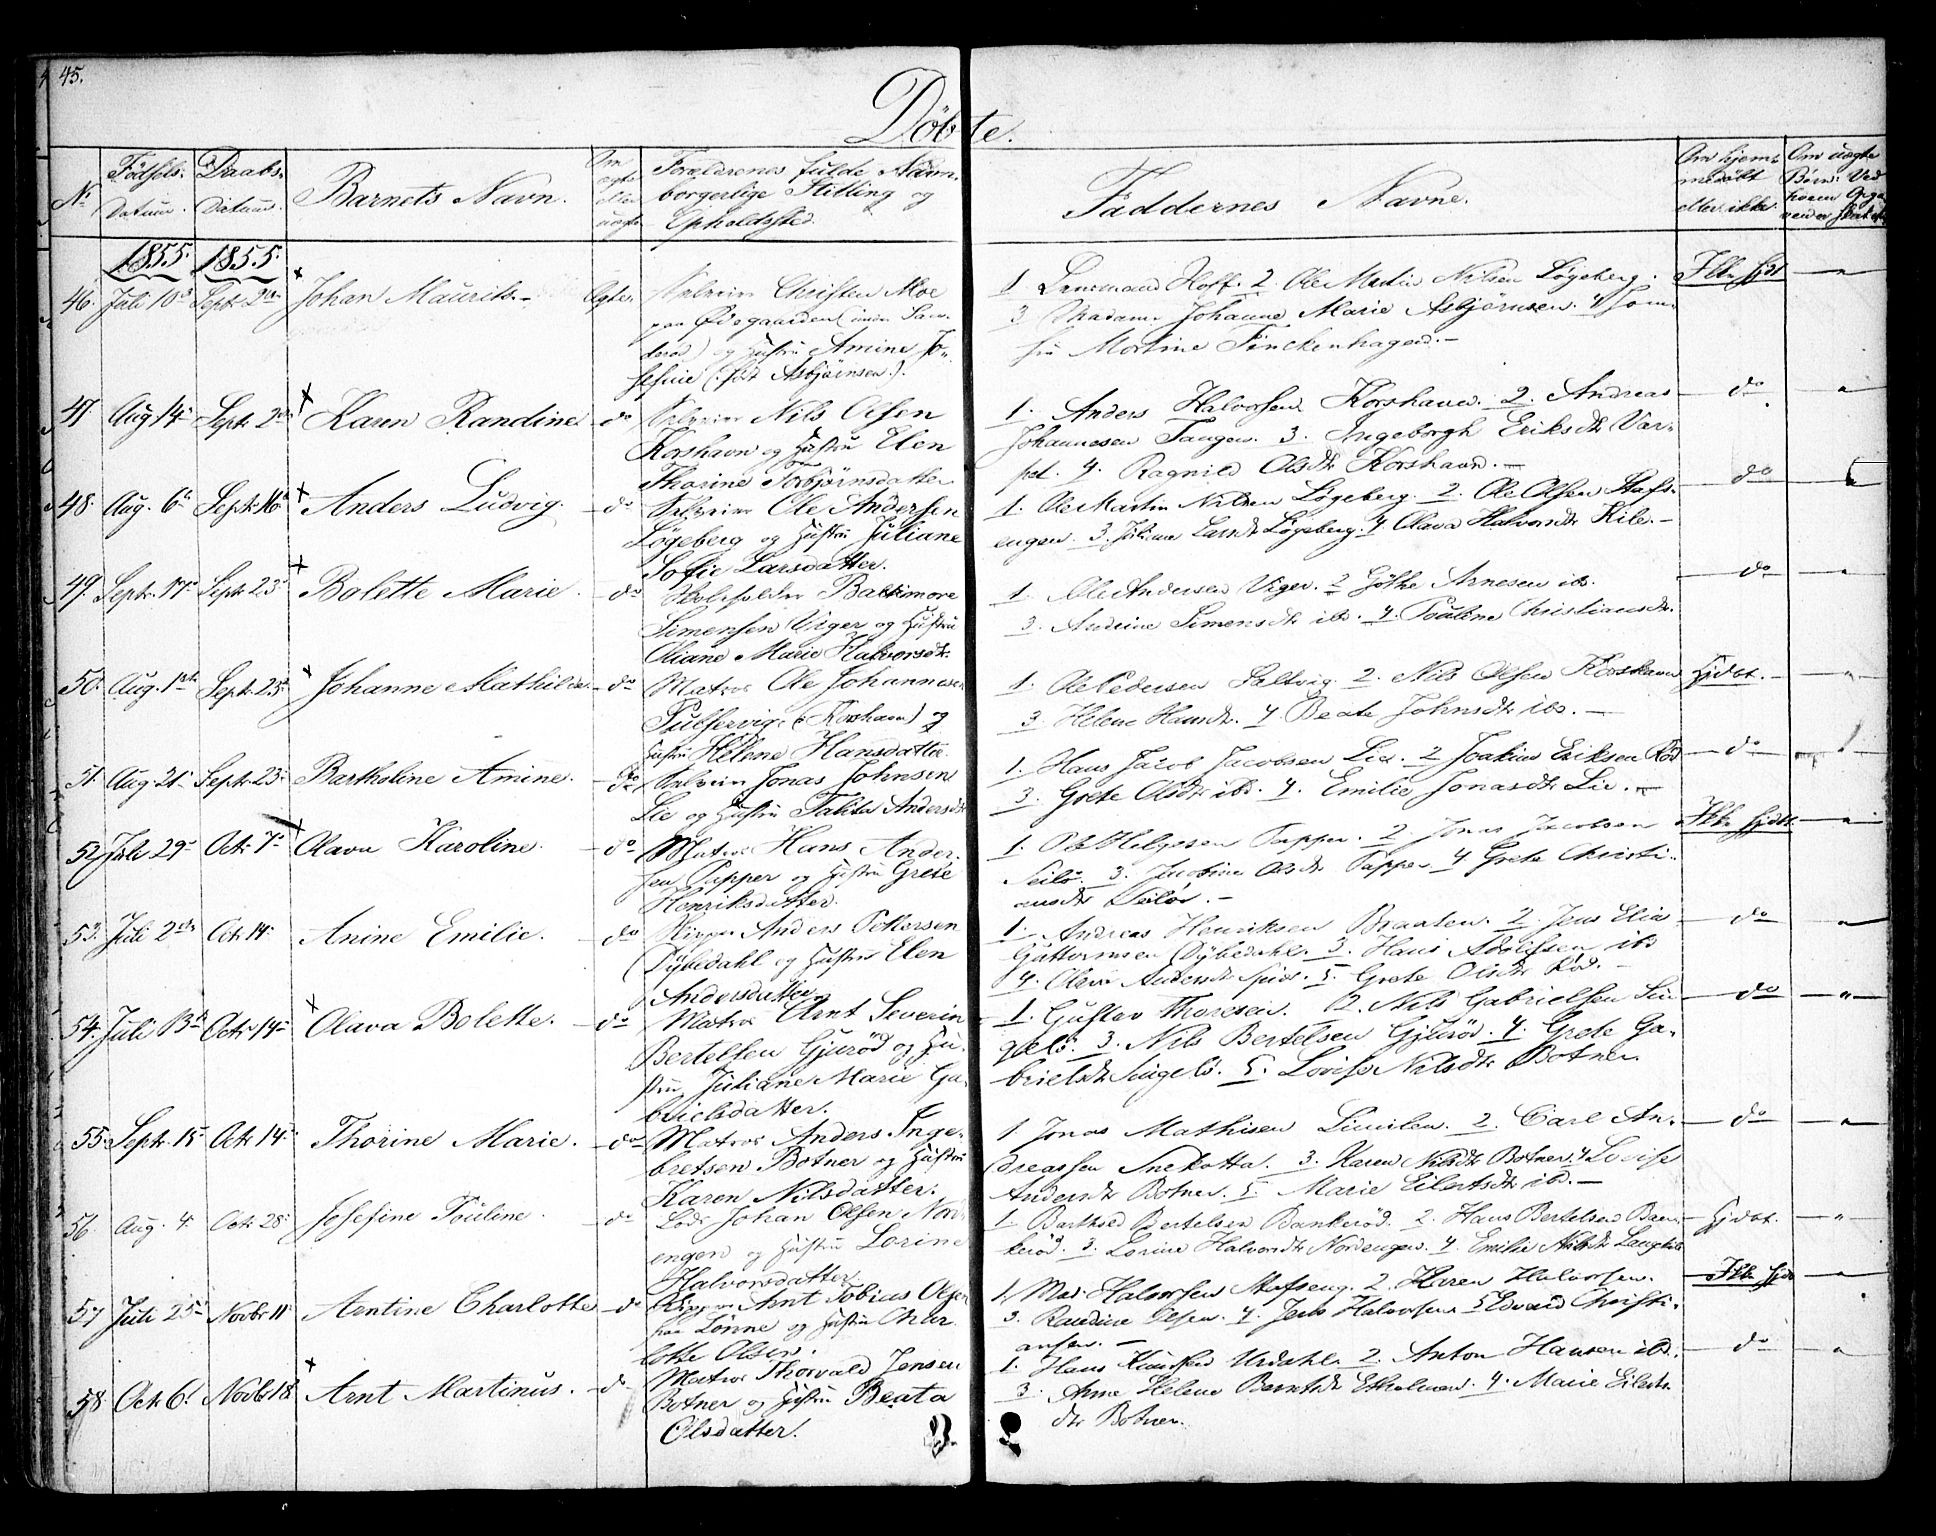 45.
Döbte.
No Fødsels Datum. Daabs Datum. Barnets Navn. Om ægte eller uægte Forældrenes fulde Navn borgerlige Stilling og Opholdssted. Faddernes Navne. Om hjemmedøbt eller ikke.
1855. 1855.
46. Juli 10 Sept. 2 Johan Maurits. Ægte. Christen Moe
paa Ødegaarden
og Hustru Amine Jo-
sefine (: født Asbjørnsen:).
1. Lensmand Hoff. 2. Ole Martin Nilsen Løgeberg.
3. Madame Johanne Marie Asbjørnsen. 4 Jom-
fru Mortine Finckenhagen.
Ikke hjdt
47. Aug 14 Sept. 2 Karen Randine do Nils Olsen
Korshavn og Hustru Elen
Thorine Torbjørnsdatter
1. Anders Halvorsen Korshavn. 2. Andreas
Johannesen Tangen. 3. Ingeborgh Eriksdtr Var-
pet. 4. Ragnild Olsdtr Korshavn.
do
48. Aug. 6 Sept. 16 Anders Ludvig. do Ole Andersen
Løgeberg og Hustru Juliane
Sofie Larsdatter.
1. Ole Martin Nilsen Løgeberg. 2. Ole Olsen Stafs-
engen. 3. Juliane Larsdtr Løgeberg. 4 Olava Halvorsdtr Kile.
do
49. Sept. 17 Sept 23 Bolette Marie. do Baltimore
Simensen Viger og Hustru
Oliane Marie Halvorsdtr.
1. Ole Andersen Viger. 2 Arnesen ibd.
3. Andrine Simensdtr ibd. 4. Pouline Christiansdtr.
do
50. Aug. 1 Sept. 23 Johanne Mathilde do Matros Ole Johannesen
(Korshavn) og
Hustru Helene Hansdatter
1. Ole Pedersen Saltvig. 2. Nils Olsen Korshavn
3. Helene Hansdtr. 4 Beate Johnsdtr ibd.
Hjdøbt.
51. Aug. 21 Sept. 23 Bartholine Amine. do Jonas Johnsen
Lie og Hustru Talita Andersdtr
1. Hans Jacob Jacobsen Lie. 2 Joakim Eriksen Rød
3. Grete Olsdtr ibd. 4. Emilie Jonasdtr Lie.
do
52. Juli 29 Oct. 7 Olava Karoline. do Matros Hans Ander-
sen Papper og Hustru Grete
Henriksdatter.
1. Ole Helgesen Papper. 2. Jonas Jacobsen
Seilø. 3. Jacobine Olsdtr Papper. 4 Grete Christi-
ansdtr Seilø.
Ikke hjdt
53. Juli 2 Oct. 14 Anine Emilie. do Skipper Anders Pettersen
Dybedahl og Hustru Elen
Andersdatter
1. Andreas Henriksen Braaten. 2. Jens Elia
Guttormsen Dybedahl. 3. Hans ibd
4. Olava Andersdtr 5. Grete Olsdtr Rød.
do
54. Juli 13 Oct. 14 Olava Bolette. do Matros Arnt Severin
Bertelsen Gjurød og Hu-
stru Juliane Marie Ga-
brielsdatter.
1. Gustav Thoresen. 2. Nils Gabrielsen Sin
gelø. 3. Nils Bertelsen Gjurød. 4. Grete Ga-
brielsdtr Singelø. 5. Lovise Nilsdtr Botner.
do
55. Sept. 15 Oct. 14 Thorine Marie. do Matros Anders Inge-
bretsen Botner og Hustru
Karen Nilsdatter.
1 Jonas Mathisen 2. Carl An-
dreassen Snekotta. 3. Karen Nilsdtr Botner. 4 Lovise
Andersdtr Botner. 5. Marie Eilertsdtr ibd.
do
56. Aug. 4 Oct. 28 Josefine Pouline. do Lods Johan Olsen Nord-
engen og Hustru Lorine
Halvorsdatter
1. Barthod Bertelsen Bankerød. 2. Hans Bertelsen Ban-
kerød. 3. Lorine Halvorsdtr Nordengen. 4. Emilie Nilsdtr
Hjdøbt.
57 Juli 25 Novbr 11 Arntine Charlotte do Skipper Arnt Tobias Olsen
paa Lønne og Hustru Char
lotte Olsen.
1. Halvorsen Stafseng. 2. Halvorsen.
3. Randine Olsen. 4. Jens Halvorsen 5 Edvard Christi-
ansen.
Ikke hjdt
58. Oct. 6 Novbr 18 Arnt Martinus. do Matros Thorvald Jensen
Botner og Hustru Beata
Olsdatter.
1. Hans Knudsen Urdahl. 2. Anton Hansen ibd.
3. Anne Helene Berntsdtr Ekholmen. 4. Marie Eilerts-
dtr Botner.
do